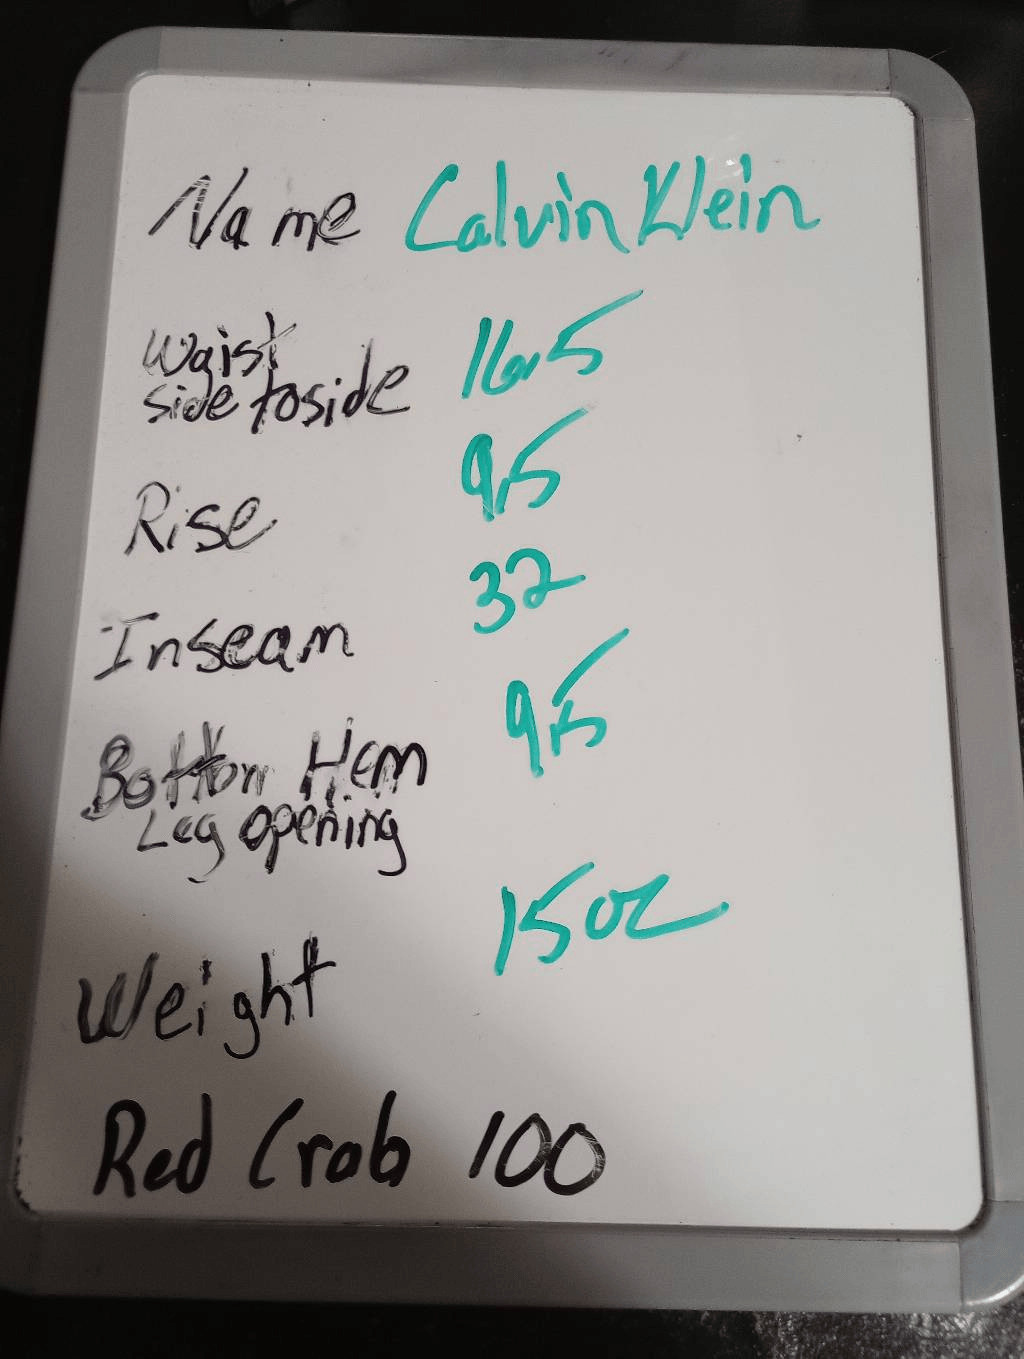 Name Calvin Klein
Waist
side to side 16.5
Rise 9.5
Inseam 32
Bottom Hem 9.5
Leg opening
Weight 15 oz
Red Crab 100